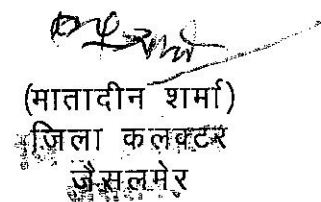 (मातादीन शर्मा)
जिला कलक्टर
जैसलमेर